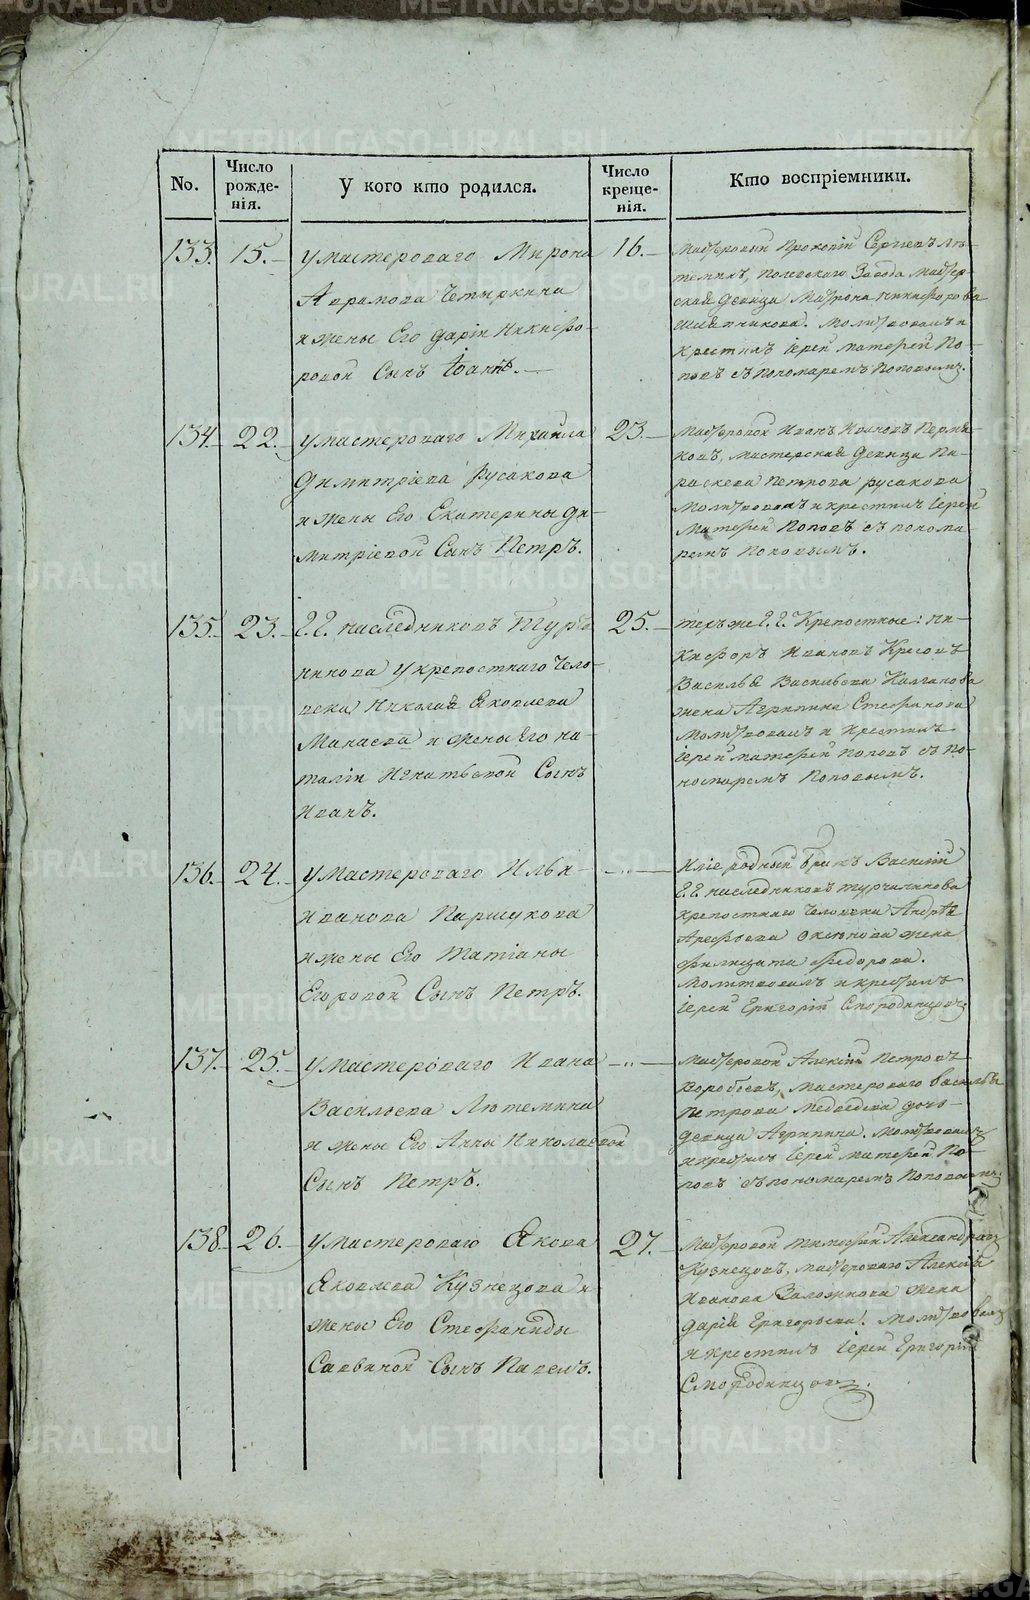 No.
Число рожде-нія.
У кого кто родился.
Число креще-нія.
Кто воспріемники.
133. 15.
у мастероваго Мирона
Аврамова Четыркина
и жены Его Даріи Никифо-
ровой Сынъ Іоаннъ.
16.
Мастеровый Прокопій Сергѣевъ Лю-
теминъ, Полевскаго Завода Мастер-
ская девица Матрона Никифорова
Молитвовалъ и
крестилъ Іерей Матѳей По-
повъ съ Пономаремъ Поповымъ.
134. 22.
у мастероваго Михаила
Димитріева Русакова
и жены Его Екатерины Ди-
митріевой Сынъ Петръ.
23.
Мастеровой Иванъ Ивановъ Перми-
ковъ, мастерская девица Па-
раскева Петрова Русакова
Молитвовалъ и крестилъ Іерей
Матѳей Поповъ съ понома-
ремъ Поповымъ.
135. 23.
Г. Г. наслѣдниковъ Турча-
нинова у крепостнаго чело-
века Николая Яковлева
Манаева и жены Его На-
таліи Игнатьевой Сынъ
Иванъ.
25.
техъ же Г. Г. Крепостные: Ни-
кифоръ Ивановъ Кресовъ
Василья Васильева Калганова
жена Агрипина Стефанова
Молитвовалъ и Крестилъ
Іерей Матѳей Поповъ съ по-
номаремъ Поповымъ.
136. 24.
у мастероваго Ильи
Иванова Паршукова
и жены Его Татіаны
Егоровой Сынъ Петръ.
— „ —
Иліе родный братъ Василій
Г. Г. наследниковъ Турчанинова
крепостнаго человека Андрея
Арефьева жена
Филицата Федорова.
Молитвовалъ и крестилъ
Іерей Григорій Смородинцовъ.
137. 25.
у мастероваго Ивана
Васильева Лютемина
и жены Его Анны Николаевой
Сынъ Петръ.
— „ —
Мастеровой Алексій Петровъ
Воробьевъ, мастероваго Василья
Петрова Медведева дочь
девица Агрипина. Молитвовалъ
и крестилъ Іерей Матѳей По-
повъ съ пономаремъ Поповымъ.
138. 26.
у мастероваго Якова
Яковлева Кузнецова и
жены Его Стефаниды
Саввиной Сынъ Павелъ.
27.
Мастеровой Тимофей Александровъ
Кузнецовъ, мастероваго Алексія
Иванова жена
Дарія Григорьева. Молитвовалъ
и крестилъ Іерей Григорій
Смородинцовъ.
METRIKI.GASO-URAL.RU